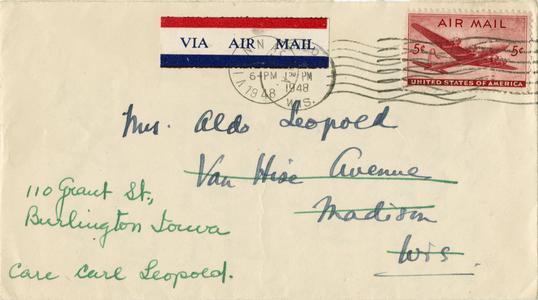 VIA AIR MAIL
AIR MAIL
5¢ 5¢
UNITED STATES OF AMERICA
6-PM
1948
PM
1948
WIS.
Mrs. Aldo Leopold
Van Hise Avenue
Madison
Wis.
110 Grant St.,
Burlington Iowa
Care Carl Leopold.